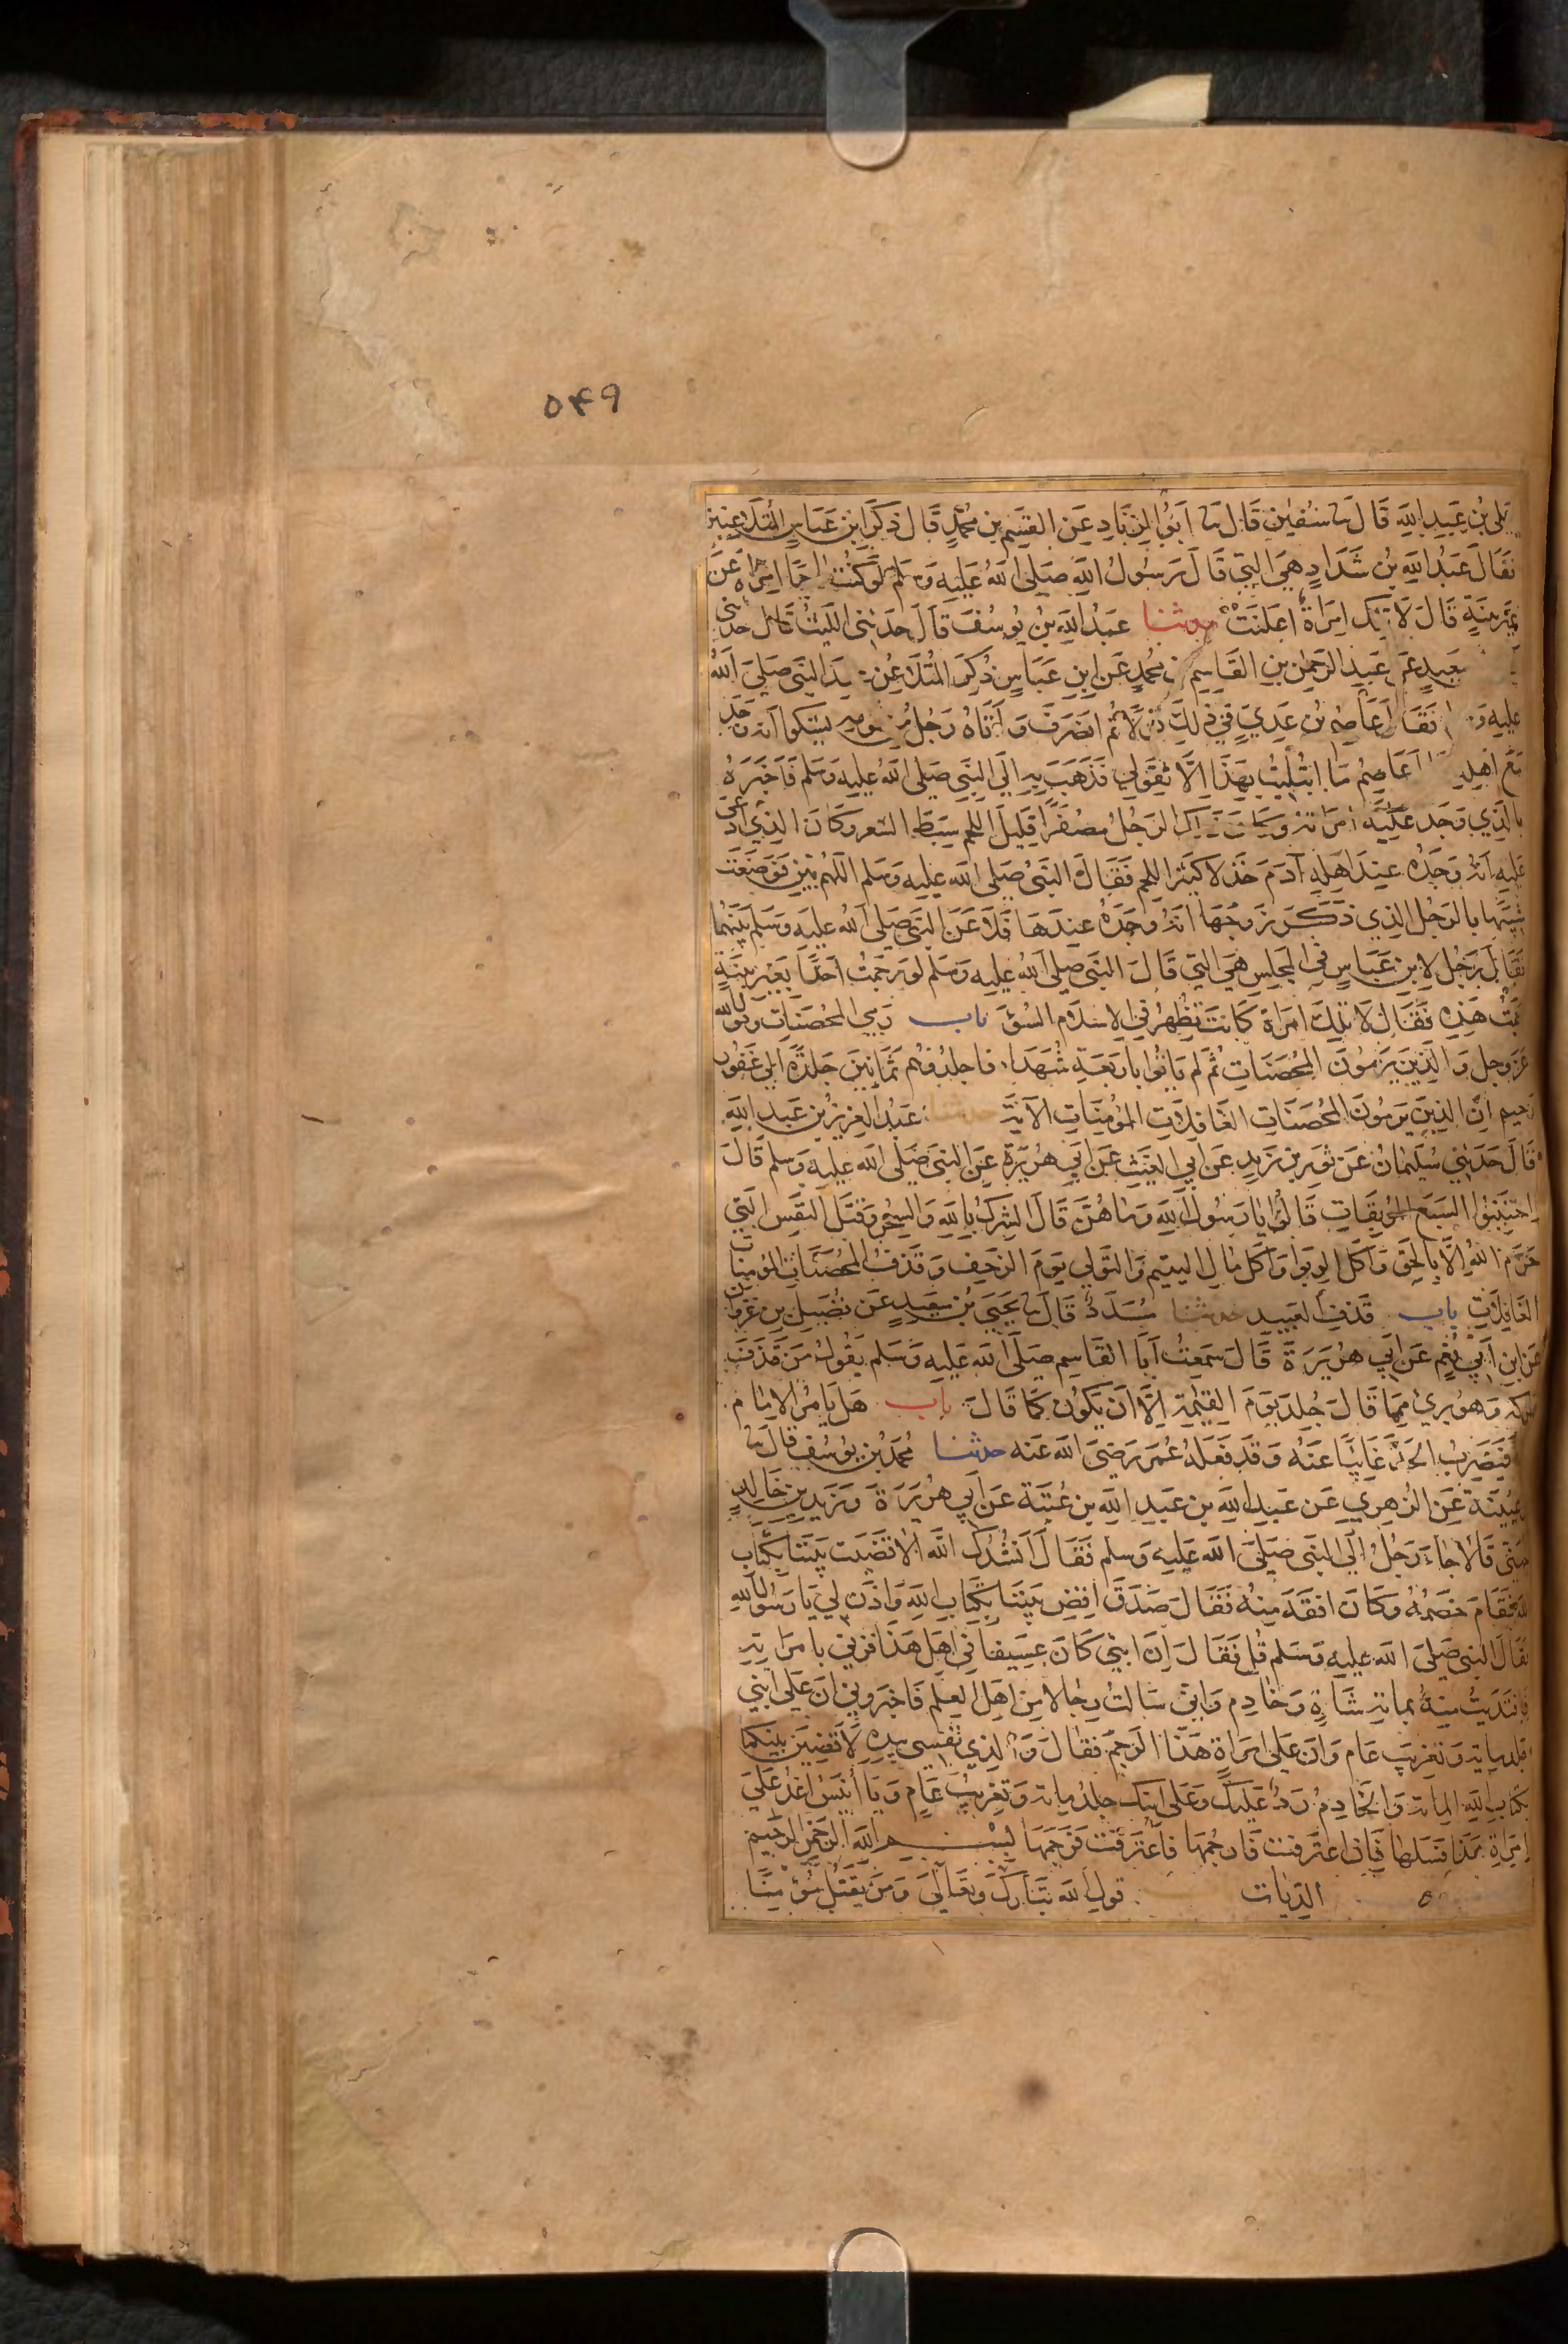 ۵۴۹
علي بن عبد الله قال نا سفين قال نا ابو الزناد عن القسم بن محمد قال ذكر ابن عباس المتلاعنين
فقال عبد الله بن شداد هي التي قال رسول الله صلى الله عليه وسلم لو كنت راجما امراة عن
غير بينة قال لا تلك امراة اعلنت حدثنا عبد الله بن يوسف قال حدثني الليث قال حدثني
سعيد عن عبد الرحمن بن القاسم بن محمد عن ابن عباس ذكر المتلاعن عند النبي صلى الله
عليه و فقال عاصم بن عدي في ذلك قولا ثم انصرف واتاه رجل من قومه يشكوا انه وجد
مع اهله عاصم ما ابتليت بهذا الا لقولي فذهب به الى النبي صلى الله عليه وسلم فاخبره
بالذي وجد عليه امراته وكان ذاك الرجل مصفرا قليل اللحم سبط الشعر وكان الذي ادعى
عليه انه وجده عند اهله آدم خدلا كثير اللحم فقال النبي صلى الله عليه وسلم اللهم بين فوضعت
شبيها بالرجل الذي ذكر زوجها انه وجده عندها فلاعن النبي صلى الله عليه وسلم بينهما
فقال رجل لابن عباس في المجلس هي التي قال النبي صلى الله عليه وسلم لو رجمت احدا بغير بينة
رجمت هذه فقال لا تلك امراة كانت تظهر في الاسلام السوٓ باب رمي المحصنات وقول الله
عز وجل والذين يرمون المحصنات ثم لم ياتوا باربعة شهداء فاجلدوهم ثمانين جلدة الى غفور
رحيم ان الذين يرمون المحصنات الغافلات المؤمنات الآية حدثنا عبد العزيز بن عبد الله
قال حدثني سليمان عن ثور بن زيد عن ابي الغيث عن ابي هريرة عن النبي صلى الله عليه وسلم قال
اجتنبوا السبع الموبقات قالوا يا رسول الله وما هن قال الشرك بالله والسحر وقتل النفس التي
حرم الله الا بالحق واكل الربوا واكل مال اليتيم والتولي يوم الزحف وقذف المحصنات المؤمنات
الغافلات باب قذف العبيد حدثنا مسدد قال نا يحيى بن سعيد عن فضيل بن غزوان
عن ابن ابي نعم عن ابي هريرة قال سمعت ابا القاسم صلى الله عليه وسلم يقول من قذف
مملوكه وهو بري مما قال جلد يوم القيمة الا ان يكون كما قال باب هل يامر الامام
فيضرب الحد غائبا عنه وقد فعله عمر رضي الله عنه حدثنا محمد بن يوسف قال نا
عيينة عن الزهري عن عبيد الله بن عبد الله بن عتبة عن ابي هريرة وزيد بن خالد
الجهني قالا جاء رجل الى النبي صلى الله عليه وسلم فقال انشدك الله الا قضيت بيننا بكتاب
الله فقام خصمه وكان افقه منه فقال صدق اقض بيننا بكتاب الله واذن لي يا رسول الله
فقال النبي صلى الله عليه وسلم قل فقال ان ابني كان عسيفا في اهل هذا فزني بامراته
فافتديت منه بمائة شاة وخادم واني سالت رجالا من اهل العلم فاخبروني ان على ابني
جلد مائة وتغريب عام وان على امراة هذا الرجم فقال والذي نفسي بيده لاقضين بينكما
بكتاب الله المائة والخادم رد عليك وعلى ابنك جلد مائة وتغريب عام ويا انيس اغد على
امراة هذا فسلها فان اعترفت فارجمها فاعترفت فرجمها بسم الله الرحمن الرحيم
الديات قول الله تبارك وتعالى ومن يقتل مؤمنا